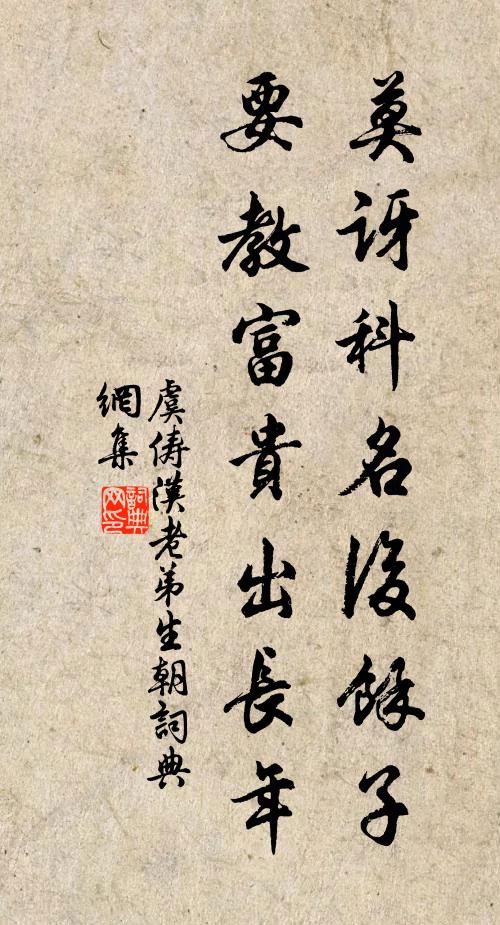 莫訝科名後餘子
要教富貴出長年
虞儔漢老弟生朝詞典
網集
詞典
网印